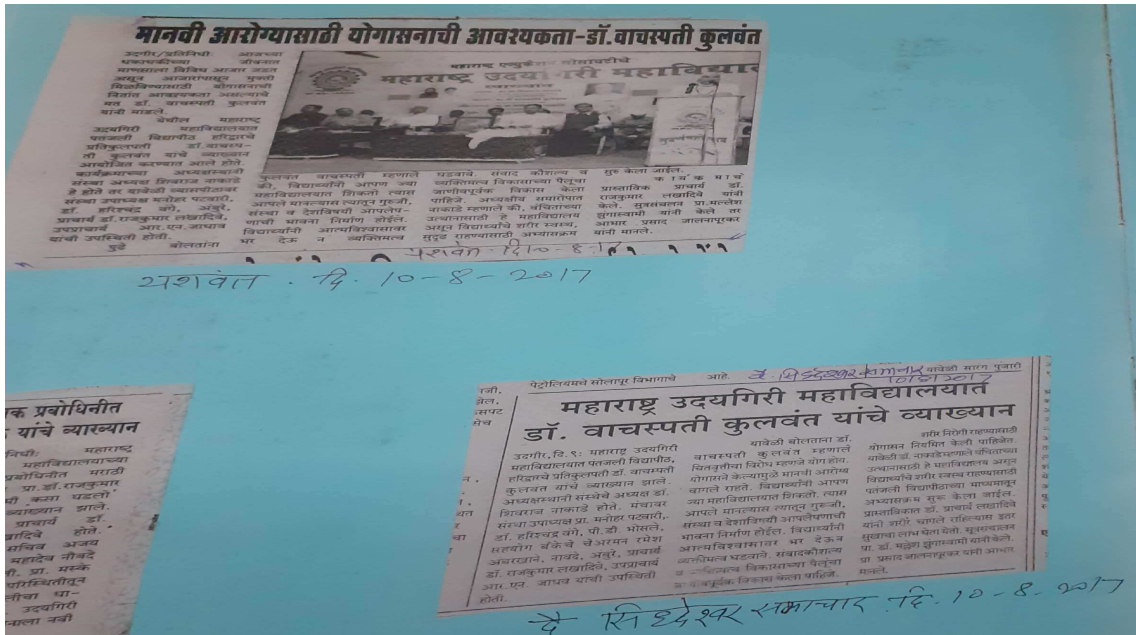 मानवी आरोग्यासाठी योगासनाची आवश्यकता-डॉ.वाचस्पती कुलवंत
उदगीर/प्रतिनिधी आजच्या
धकाधकीच्या जीवनात
माणसाला विविध आजार जडत
असून आजारापासून मुक्ती
मिळविण्यासाठी योगासनाची
नितांत आवश्यकता असल्याचे
मत डॉ. वाचस्पती कुलवंत
यांनी मांडले.
येथील महाराष्ट्र
उदयगिरी महाविद्यालयात
पतंजली विद्यापीठ हरिद्वारचे
प्रतिकुलपती डॉ.वाचस्प-
ती कुलवंत यांचे व्याख्यान
आयोजित करण्यात आले होते.
कार्यक्रमाच्या अध्यक्षस्थानी
संस्था अध्यक्ष शिवराज नाकाडे
हे होते तर यावेळी व्यासपीठावर
संस्था उपाध्यक्ष मनोहर पटवारी,
डॉ. हरिश्चंद्र वगे, अंबुरे,
प्राचार्य डॉ.राजकुमार लखादिवे,
उपप्राचार्य आर.एन.जाधव
यांची उपस्थिती होती.
पुढे बोलतांना
महाराष्ट्र एज्युकेशन सोसायटीचे
महाराष्ट्र उदयगिरी महाविद्याल
कुलवंत वाचस्पती म्हणाले
की, विद्यार्थ्यांनी आपण ज्या
महाविद्यालयात शिकतो त्यास
आपले मानल्यास त्यातून गुरुजी,
संस्था व देशाविषयी आपलेप-
णाची भावना निर्माण होईल.
विद्यार्थ्यांनी आत्मविश्वासावर
भर देऊन व्यक्तिमत्व
घडवावे. संवाद कौशल्य व
व्यक्तिमत्व विकासाच्या पैलूंचा
जाणीवपूर्वक विकास केला
पाहिजे. अध्यक्षीय समारोपात
नाकाडे म्हणाले की, वंचितांच्या
उत्थानासाठी हे महाविद्यालय
असून विद्यार्थ्यांचे शरीर स्वस्थ,
सुदृढ राहण्यासाठी अभ्यासक्रम
सुरु केला जाईल.
कार्यक्रमाचे
प्रास्ताविक प्राचार्य डॉ.
राजकुमार लखादिवे यांनी
केले. सुत्रसंचालन प्रा.मल्लेश
झुंगास्वामी यांनी केले तर
आभार प्रसाद जालनापूरकर
यांनी मानले.
यशवंत . दि. 10-8-2017
क प्रबोधिनीत
यांचे व्याख्यान
महाराष्ट्र
महाविद्यालयाच्या
प्रबोधिनीत मराठी
प्रा.डॉ.राजकुमार
कसा घडलो
व्याख्यान झाले.
प्राचार्य डॉ.
होते.
सचिव अजय
महादेव नौबदे
प्रा. मस्के
परिस्थितीतून
उदयगिरी
पेट्रोलियमचे सोलापूर विभागाचे आहे. यावेळी सारग पुजारी
महाराष्ट्र उदयगिरी महाविद्यालयात
डॉ. वाचस्पती कुलवंत यांचे व्याख्यान
उदगीर,दि.९: महाराष्ट्र उदयगिरी
महाविद्यालयात पतंजली विद्यापीठ,
हरिद्वारचे प्रतिकुलपती डॉ. वाचस्पती
कुलवंत यांचे व्याख्यान झाले.
अध्यक्षस्थानी संस्थेचे अध्यक्ष डॉ.
शिवराज नाकाडे होते. मंचावर
संस्था उपाध्यक्ष प्रा. मनोहर पटवारी,
डॉ. हरिश्चंद्र वगे, पी.डी. भोसले,
सहयोग बँकेचे चेअरमन रमेश
अंबरखाने, नावंदे, अंबुरे, प्राचार्य
डॉ. राजकुमार लखादिवे, उपप्राचार्य
आर.एन. जाधव यांची उपस्थिती
होती.
यावेळी बोलताना डॉ.
वाचस्पती कुलवंत म्हणाले
चित्तवृत्तीचा विरोध म्हणजे योग होय.
योगासने केल्यामुळे मानवी आरोग्य
चांगले राहते. विद्यार्थ्यांनी आपण
ज्या महाविद्यालयात शिकतो. त्यास
आपले मानल्यास त्यातून गुरूजी,
संस्था व देशाविषयी आपलेपणाची
भावना निर्माण होईल. विद्यार्थ्यांनी
आत्मविश्वासावर भर देऊन
व्यक्तीमत्व घडवावे. संवादकौशल्य
व व्यक्तिमत्व विकासाच्या पैलूंचा
जाणीवपूर्वक विकास केला पाहिजे.
शरीर निरोगी राहण्यासाठी
योगासन नियमित केली पाहिजेत.
यावेळी डॉ. नाकाडे म्हणाले वंचितांच्या
उत्थानासाठी हे महाविद्यालय असून
विद्यार्थ्यांचे शरीर स्वस्थ राहण्यासाठी
पतंजली विद्यापीठाच्या माध्यमातून
अभ्यासक्रम सुरू केला जाईल.
प्रास्ताविकात डॉ. प्राचार्य लखादिवे
यांनी शरीर चांगले राहिल्यास इतर
सुखाचा लाभ घेता येतो. सूत्रसंचालन
प्रा. डॉ. मल्लेश झुंगास्वामी यांनी केले.
प्रा. प्रसाद जालनापूरकर यांनी आभार
मानले.
दै सिध्देश्वर समाचार . दि. 10-8-2017